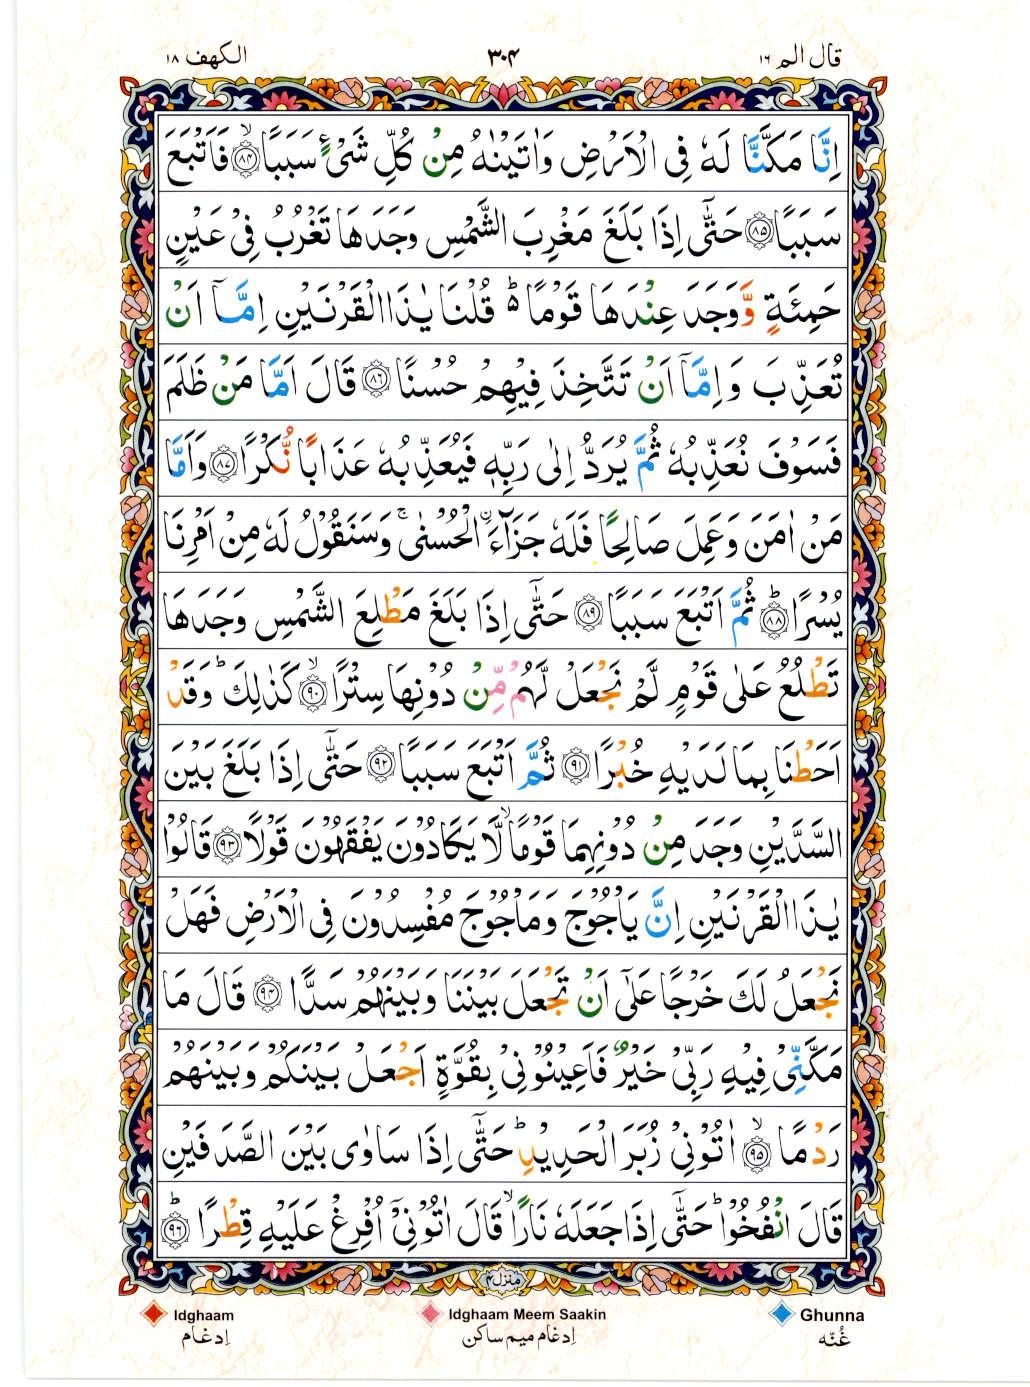 قال الم ١٦
٣٠٤
الكهف ١٨
اِنَّا مَكَّنَّا لَهٗ فِى الْاَرْضِ وَاٰتَيْنٰهُ مِنْ كُلِّ شَىْءٍ سَبَبًا ۙ‏﴿۸۴﴾ فَاَتْبَعَ
سَبَبًا ﴿۸۵﴾ حَتّٰٓى اِذَا بَلَغَ مَغْرِبَ الشَّمْسِ وَجَدَهَا تَغْرُبُ فِىْ عَيْنٍ
حَمِئَةٍ وَّ وَجَدَ عِنْدَهَا قَوْمًا ؕ قُلْنَا يٰذَا الْقَرْنَيْنِ اِمَّاۤ اَنْ
تُعَذِّبَ وَ اِمَّاۤ اَنْ تَتَّخِذَ فِيْهِمْ حُسْنًا ﴿۸۶﴾ قَالَ اَمَّا مَنْ ظَلَمَ
فَسَوْفَ نُعَذِّبُهٗ ثُمَّ يُرَدُّ اِلٰى رَبِّهٖ فَيُعَذِّبُهٗ عَذَابًا نُّكْرًا ﴿۸۷﴾ وَاَمَّا
مَنْ اٰمَنَ وَعَمِلَ صَالِحًا فَلَهٗ جَزَآءَ ۨالْحُسْنٰى ۚ وَسَنَقُوْلُ لَهٗ مِنْ اَمْرِنَا
يُسْرًا ؕ‏﴿۸۸﴾ ثُمَّ اَتْبَعَ سَبَبًا ﴿۸۹﴾ حَتّٰٓى اِذَا بَلَغَ مَطْلِعَ الشَّمْسِ وَجَدَهَا
تَطْلُعُ عَلٰى قَوْمٍ لَّمْ نَجْعَلْ لَّهُمْ مِّنْ دُوْنِهَا سِتْرًا ۙ‏﴿۹۰﴾ كَذٰلِكَ ؕ وَقَدْ
اَحَطْنَا بِمَا لَدَيْهِ خُبْرًا ﴿۹۱﴾ ثُمَّ اَتْبَعَ سَبَبًا ﴿۹۲﴾ حَتّٰٓى اِذَا بَلَغَ بَيْنَ
السَّدَّيْنِ وَجَدَ مِنْ دُوْنِهِمَا قَوْمًا ۙ لَّا يَكَادُوْنَ يَفْقَهُوْنَ قَوْلًا ﴿۹۳﴾ قَالُوْا
يٰذَا الْقَرْنَيْنِ اِنَّ يَاْجُوْجَ وَمَاْجُوْجَ مُفْسِدُوْنَ فِى الْاَرْضِ فَهَلْ
نَجْعَلُ لَكَ خَرْجًا عَلٰٓى اَنْ تَجْعَلَ بَيْنَنَا وَبَيْنَهُمْ سَدًّا ﴿۹۴﴾ قَالَ مَا
مَكَّنِّىْ فِيْهِ رَبِّىْ خَيْرٌ فَاَعِيْنُوْنِىْ بِقُوَّةٍ اَجْعَلْ بَيْنَكُمْ وَبَيْنَهُمْ
رَدْمًا ۙ‏﴿۹۵﴾ اٰتُوْنِىْ زُبَرَ الْحَدِيْدِ ؕ حَتّٰٓى اِذَا سَاوٰى بَيْنَ الصَّدَفَيْنِ
قَالَ انْفُخُوْا ؕ حَتّٰٓى اِذَا جَعَلَهٗ نَارًا ۙ قَالَ اٰتُوْنِىْۤ اُفْرِغْ عَلَيْهِ قِطْرًا ؕ‏﴿۹۶﴾
منزل ۴
Idghaam
Idghaam Meem Saakin
Ghunna
اِدغام
اِدغام میم ساکن
غُنّه